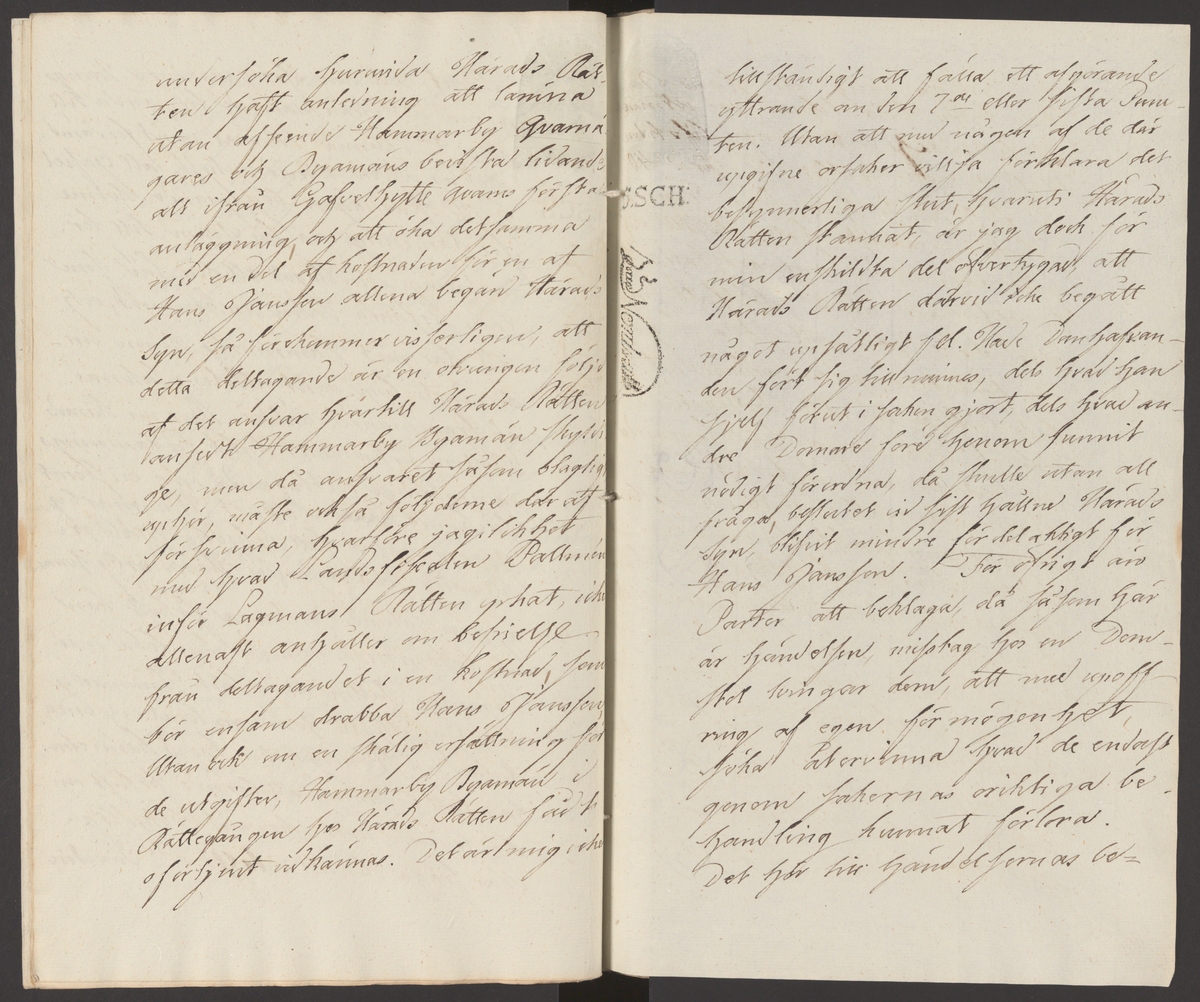 undersöka huruvida Härads Rät-
ten haft anledning att lämna
utan afseende Hammarby Qvarnä
gares och Byamäns bevista lidande
alt ifrån Gafvelhytte qvarns första
anläggning, och att öka detsamma
med en del af kostnaden för en af
Hans Jansson allena begärd Härads
Syn, så förekommer visserligen, att
detta deltagande är en otvungen följd
af det ansvar hvartill Härads Rätten
ansedt Hammarby Byamän skyldi
ge, men då ansvaret såsom olaglig
uphör, måste också följderne där af
försvinna, hvarföre jag i likhet
med hvad Landsfiscalen Pallmén
inför Lagmans Rätten yrkat, icke
allenast anhåller om befrielse
från deltagandet i en kostnad, som
bör ensam drabba Hans Jansson,
Utan ock om en skälig ersättning för
de utgifter, Hammarby Byamän i
Rättegången hos Härads Rätten fådt
oförtjent vidkännas. Det är mig icke
tillständigt att fälla ett afgörande
yttrande an den 7de eller sista Punc-
ten. Utan att med någon af de där
upgifne orsaker vilja förklara det
bekymmerliga slut, hvaruti Härads
Rätten stannat, är jag dock för
min enskildta del öfvertygad, att
Härads Rätten därvid icke begått
något upsåtligt fel. Hade Domhafvan-
den fört sig till minnes, dels hvad han
sjelf förut i saken gjort, dels hvad an-
dre Domare före honom funnit
nödigt förordna, då skulle utan all
fråga, beslutet vid sist hållne Härads
Syn, blifvit mindre fördelaktigt för
Hans Jansson. För öfrigt äro
Parter att beklaga, då såsom här
är händelsen, misstag hos en Dom-
stol tvingar dem, att med upoff-
ring af egen förmögenhet,
söka återvinna hvad de endast
genom sakernas oriktiga be-
handling kunnat förlora.
Det hör till händelsernas be=
S.SCH: